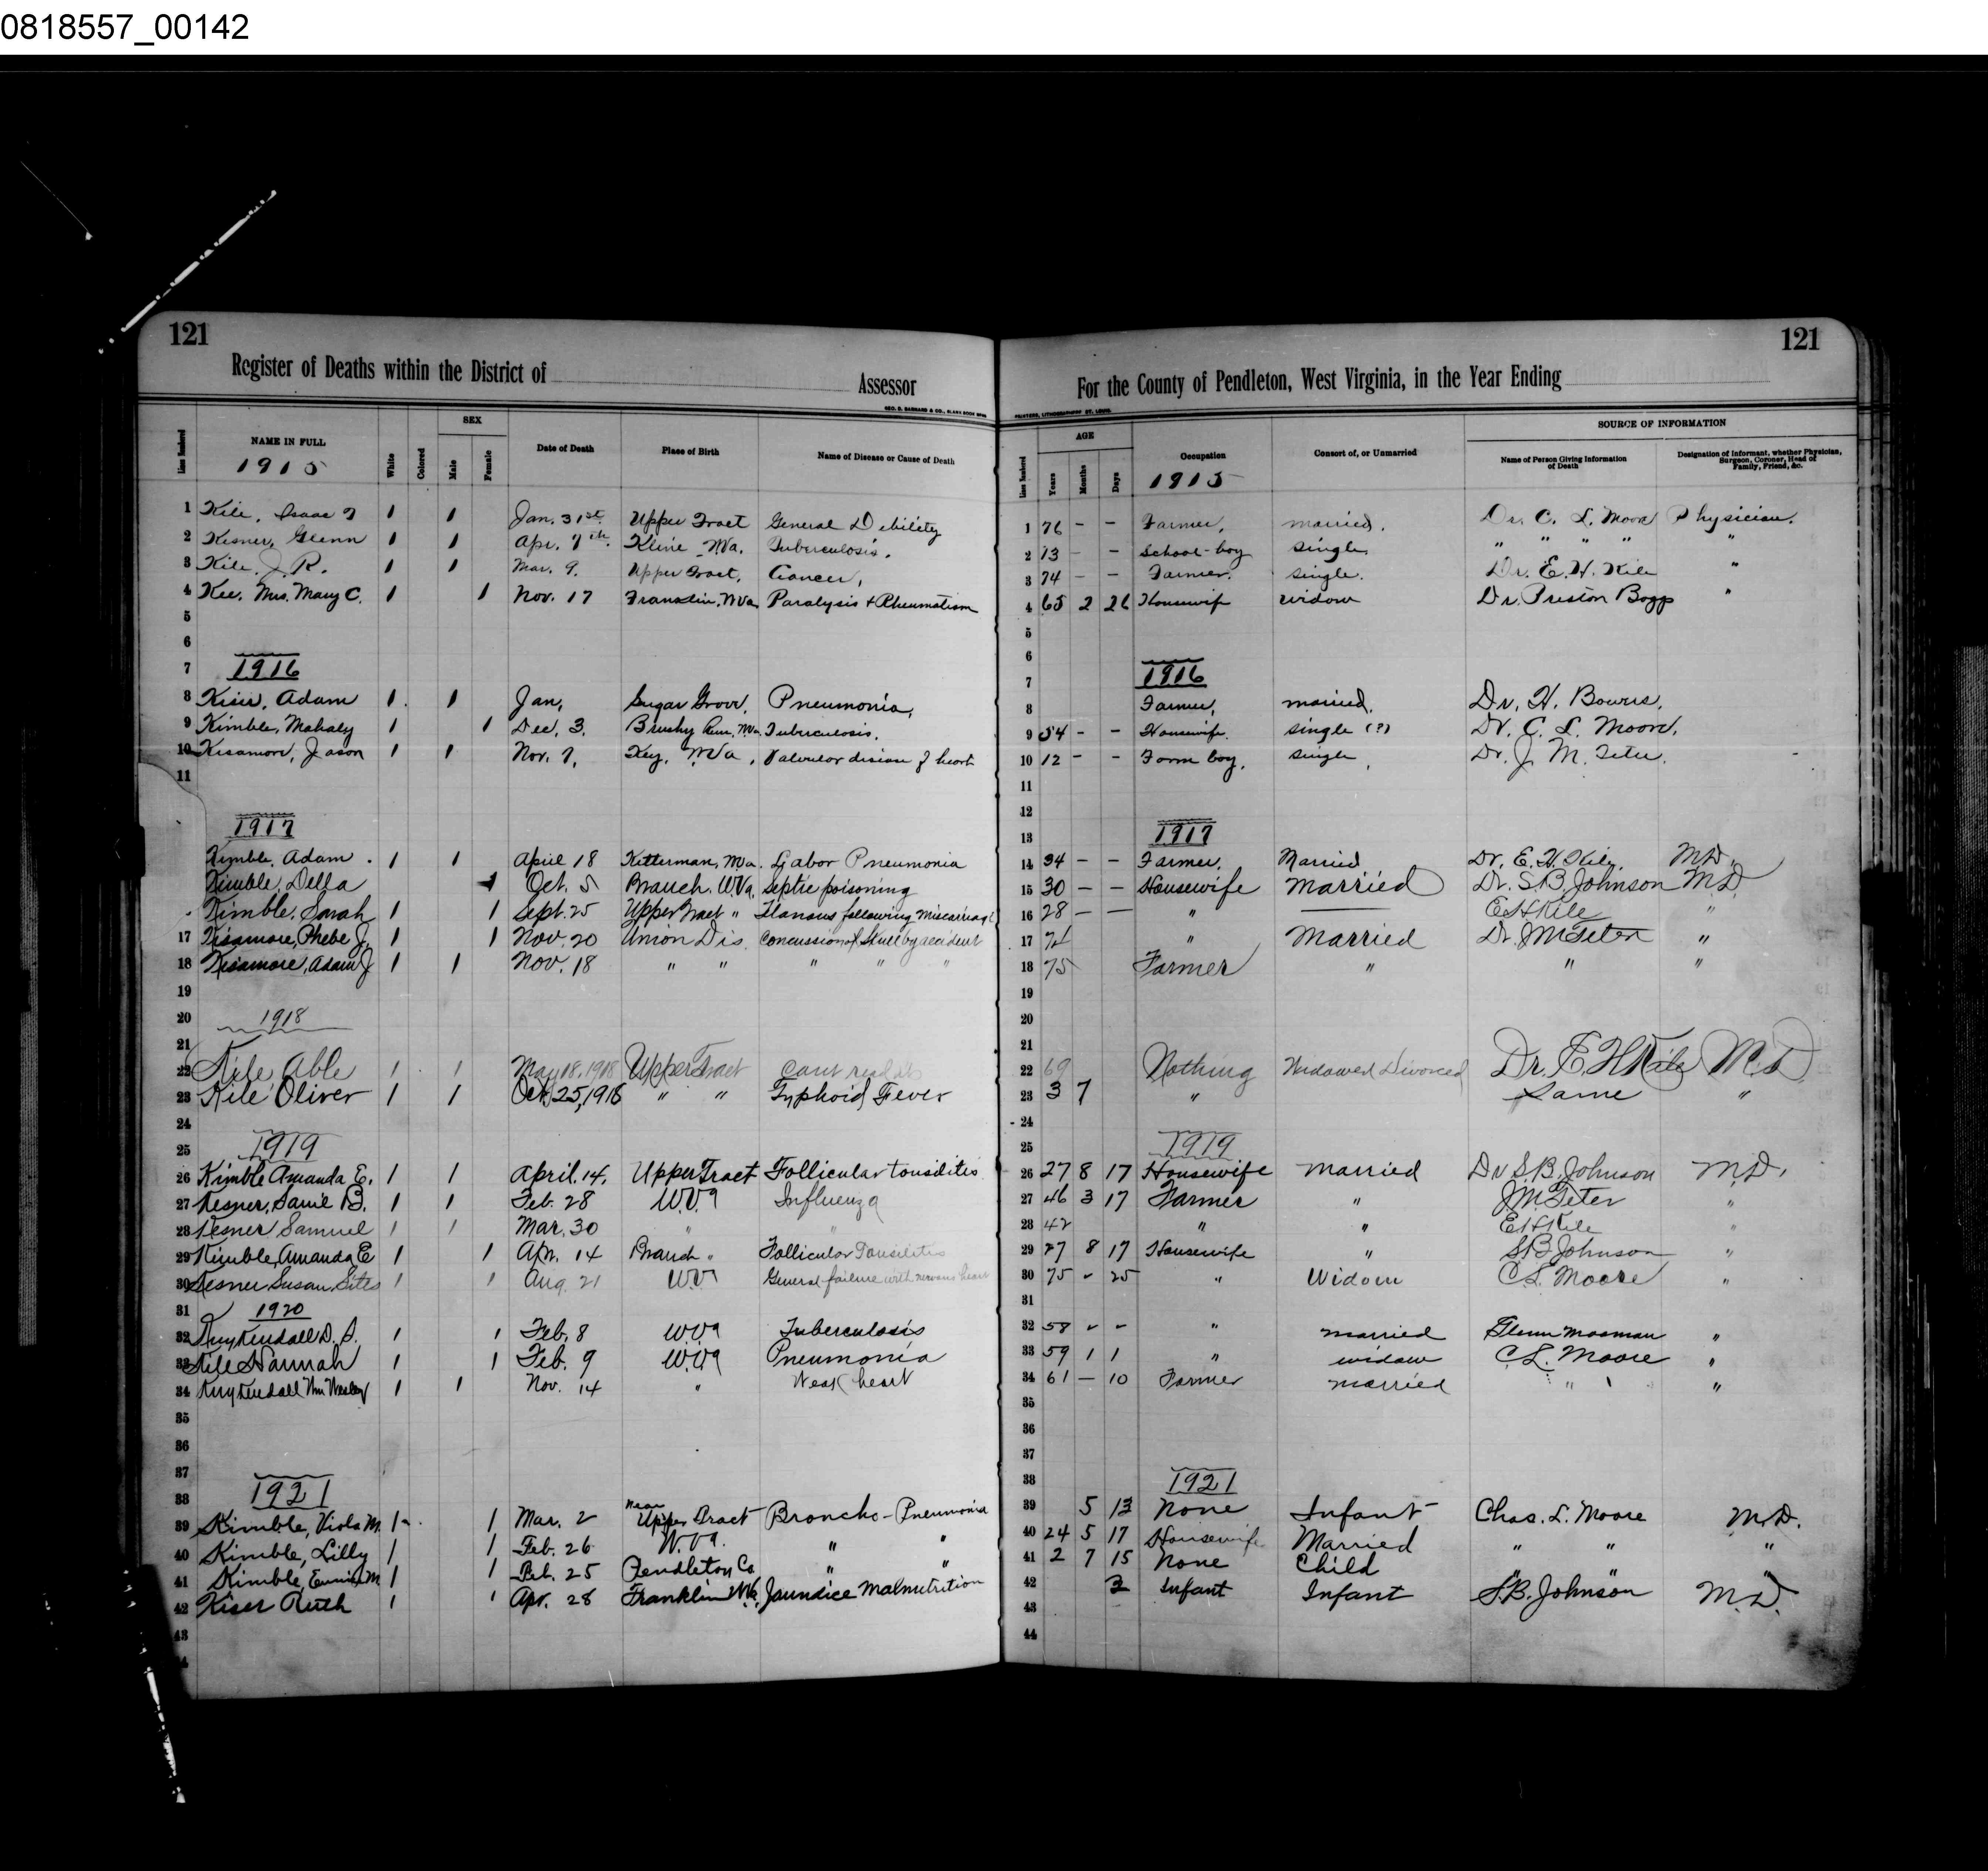 0818557_00142
121
Register of Deaths within the District of Assessor
GEO. D. BARNARD & CO., BLANK BOOK
Line Numbered NAME IN FULL White Colored SEX Male Female Date of Death Place of Birth Name of Disease or Cause of Death
1915
1 Kile, Isaac 1 1 Jan. 31st. Upper Tract General Debility
2 Kesner, Glenn 1 1 Apr. 7th. Kline W.Va. Tuberculosis.
3 Kile, J. R. 1 1 Mar. 9. Upper Tract, Cancer,
4 Kee, Mrs. Mary C. 1 1 Nov. 17 Franklin, W.Va. Paralysis + Rheumatism
5
6
7 1916
8 Kiser, Adam 1 1 Jan, Sugar Grove, Pneumonia,
9 Kimble, Mahaly 1 1 Dec, 3. Brushy Run, W.Va. Tuberculosis.
10 Kisamore, Jason 1 1 Nov. 7, Key, W.Va, Valvular disease of heart
11
1917
Kimble, Adam 1 1 April 18 Ketterman, W.Va. Labor Pneumonia
Kimble, Della 1 Oct. 5 Branch, W.Va. Septic poisoning
Kimble, Sarah 1 1 Sept. 25 Upper Tract " following miscarriage
17 Kisamore, Phebe J. 1 1 Nov. 20 Union Dis. Concussion of Skull by accident
18 Kisamore, Adam J 1 1 Nov. 18 " " " " "
19
20 1918
21
22 Kile Able 1 1 May 18, 1918 Upper Tract Cant read it
23 Kile Oliver 1 1 Oct. 25, 1918 " " Typhoid Fever
24
25 1919
26 Kimble Amanda E. 1 1 April. 14. Upper Tract Follicular tonsilitis
27 Kesner, B. 1 1 Feb. 28 W.Va Influenza
28 Kesner Samuel 1 1 Mar. 30 " "
29 Kimble, Amanda E 1 1 Apr. 14 Branch " Follicular Tonsilitis
30 Kesner Susan Sites 1 1 Aug. 21 W.V General failure with nervous heart
31 1920
32 Kuykendall D. S. 1 1 Feb. 8 W.Va Tuberculosis
33 Kile Hannah 1 1 Feb. 9 W.Va Pneumonia
34 Kuykendall Wm Wesley 1 1 Nov. 14 " Weak heart
35
36
37
38 1921
39 Kimble, Viola M. 1 1 Mar. 2 Near Upper Tract Broncho-Pneumonia
40 Kimble, Lilly 1 1 Feb. 26 W.Va. " "
41 Kimble, M 1 1 Feb. 25 Pendleton Co. " "
42 Kiser Ruth 1 1 Apr. 28 Franklin W.Va. Jaundice Malnutrition
43
121
For the County of Pendleton, West Virginia, in the Year Ending
PRINTERS, LITHOGRAPHERS ST. LOUIS.
Line Numbered AGE Years Months Days Occupation Consort of, or Unmarried SOURCE OF INFORMATION
Name of Person Giving Information of Death Designation of Informant, whether Physician, Surgeon, Coroner, Head of Family, Friend, &c.
1915
1 76 - - Farmer, married. Dr. C. L. Moore Physician.
2 13 - - School-boy single " " " " "
3 74 - - Farmer. single. Dr. E. H. Kile "
4 65 2 26 Housewife widow Dr. Preston Boggs "
5
6
7 1916
8 Farmer, married. Dr. H. Bowers.
9 54 - - Housewife. single (?) Dr. C. L. Moore.
10 12 - - Farm boy, single, Dr. J. M. Teter.
11
12
13 1917
14 34 - - Farmer, Married Dr. E. H. Kile M.D.
15 30 - - Housewife Married Dr. S. B. Johnson M.D
16 28 - - " — E H Kile "
17 " Married Dr. J M Teter "
18 75 Farmer " " "
19
20
21
22 69 Nothing Widowed Divorced Dr. E. H Kile M.D
23 3 7 " Same "
24
25 1919
26 27 8 17 Housewife Married Dr S. B. Johnson M.D.
27 46 3 17 Farmer " J M Teter "
28 42 " " E H Kile "
29 27 8 17 Housewife " S B Johnson "
30 75 - 25 " Widow C L. Moore "
31
32 58 - - " married Glenn Mosman "
33 59 1 1 " widow C. L. Moore "
34 61 - 10 Farmer married " " "
35
36
37
38 1921
39 5 13 None Infant Chas. L. Moore M.D.
40 24 5 17 Housewife Married " " "
41 2 7 15 None Child " " "
42 Infant Infant S. B. Johnson M.D.
43
44